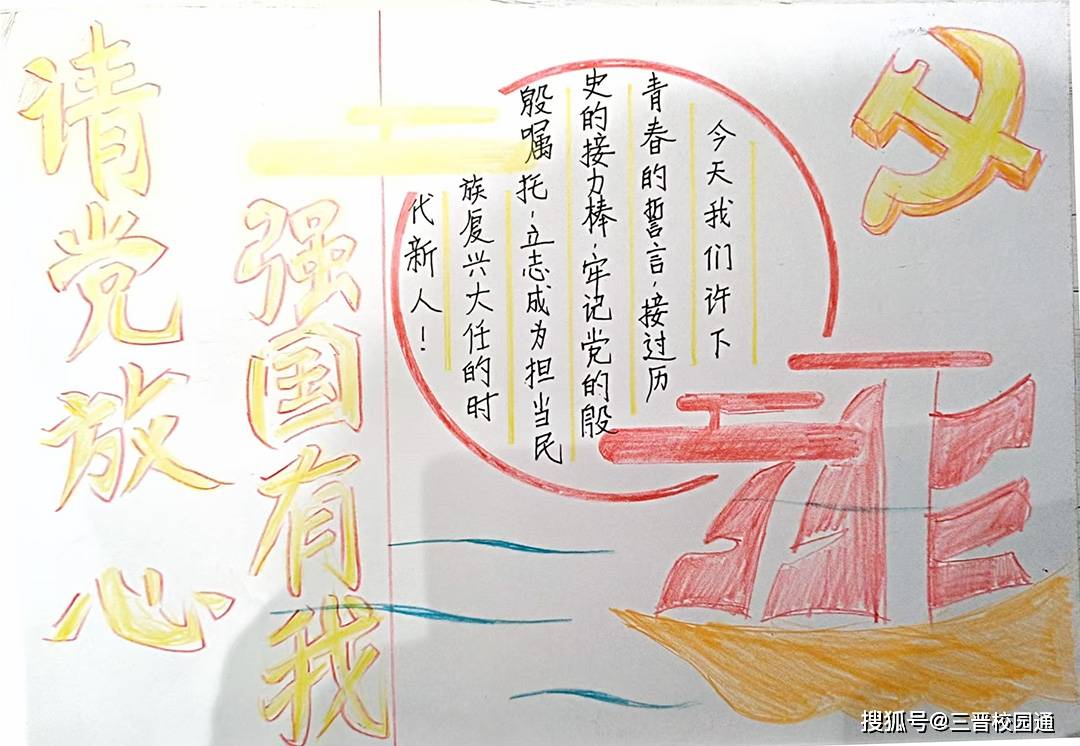 请党放心
强国有我
今天我们许下
青春的誓言，接过历
史的接力棒，牢记党的殷
殷嘱托，立志成为担当民
族复兴大任的时
代新人！
搜狐号@三晋校园通